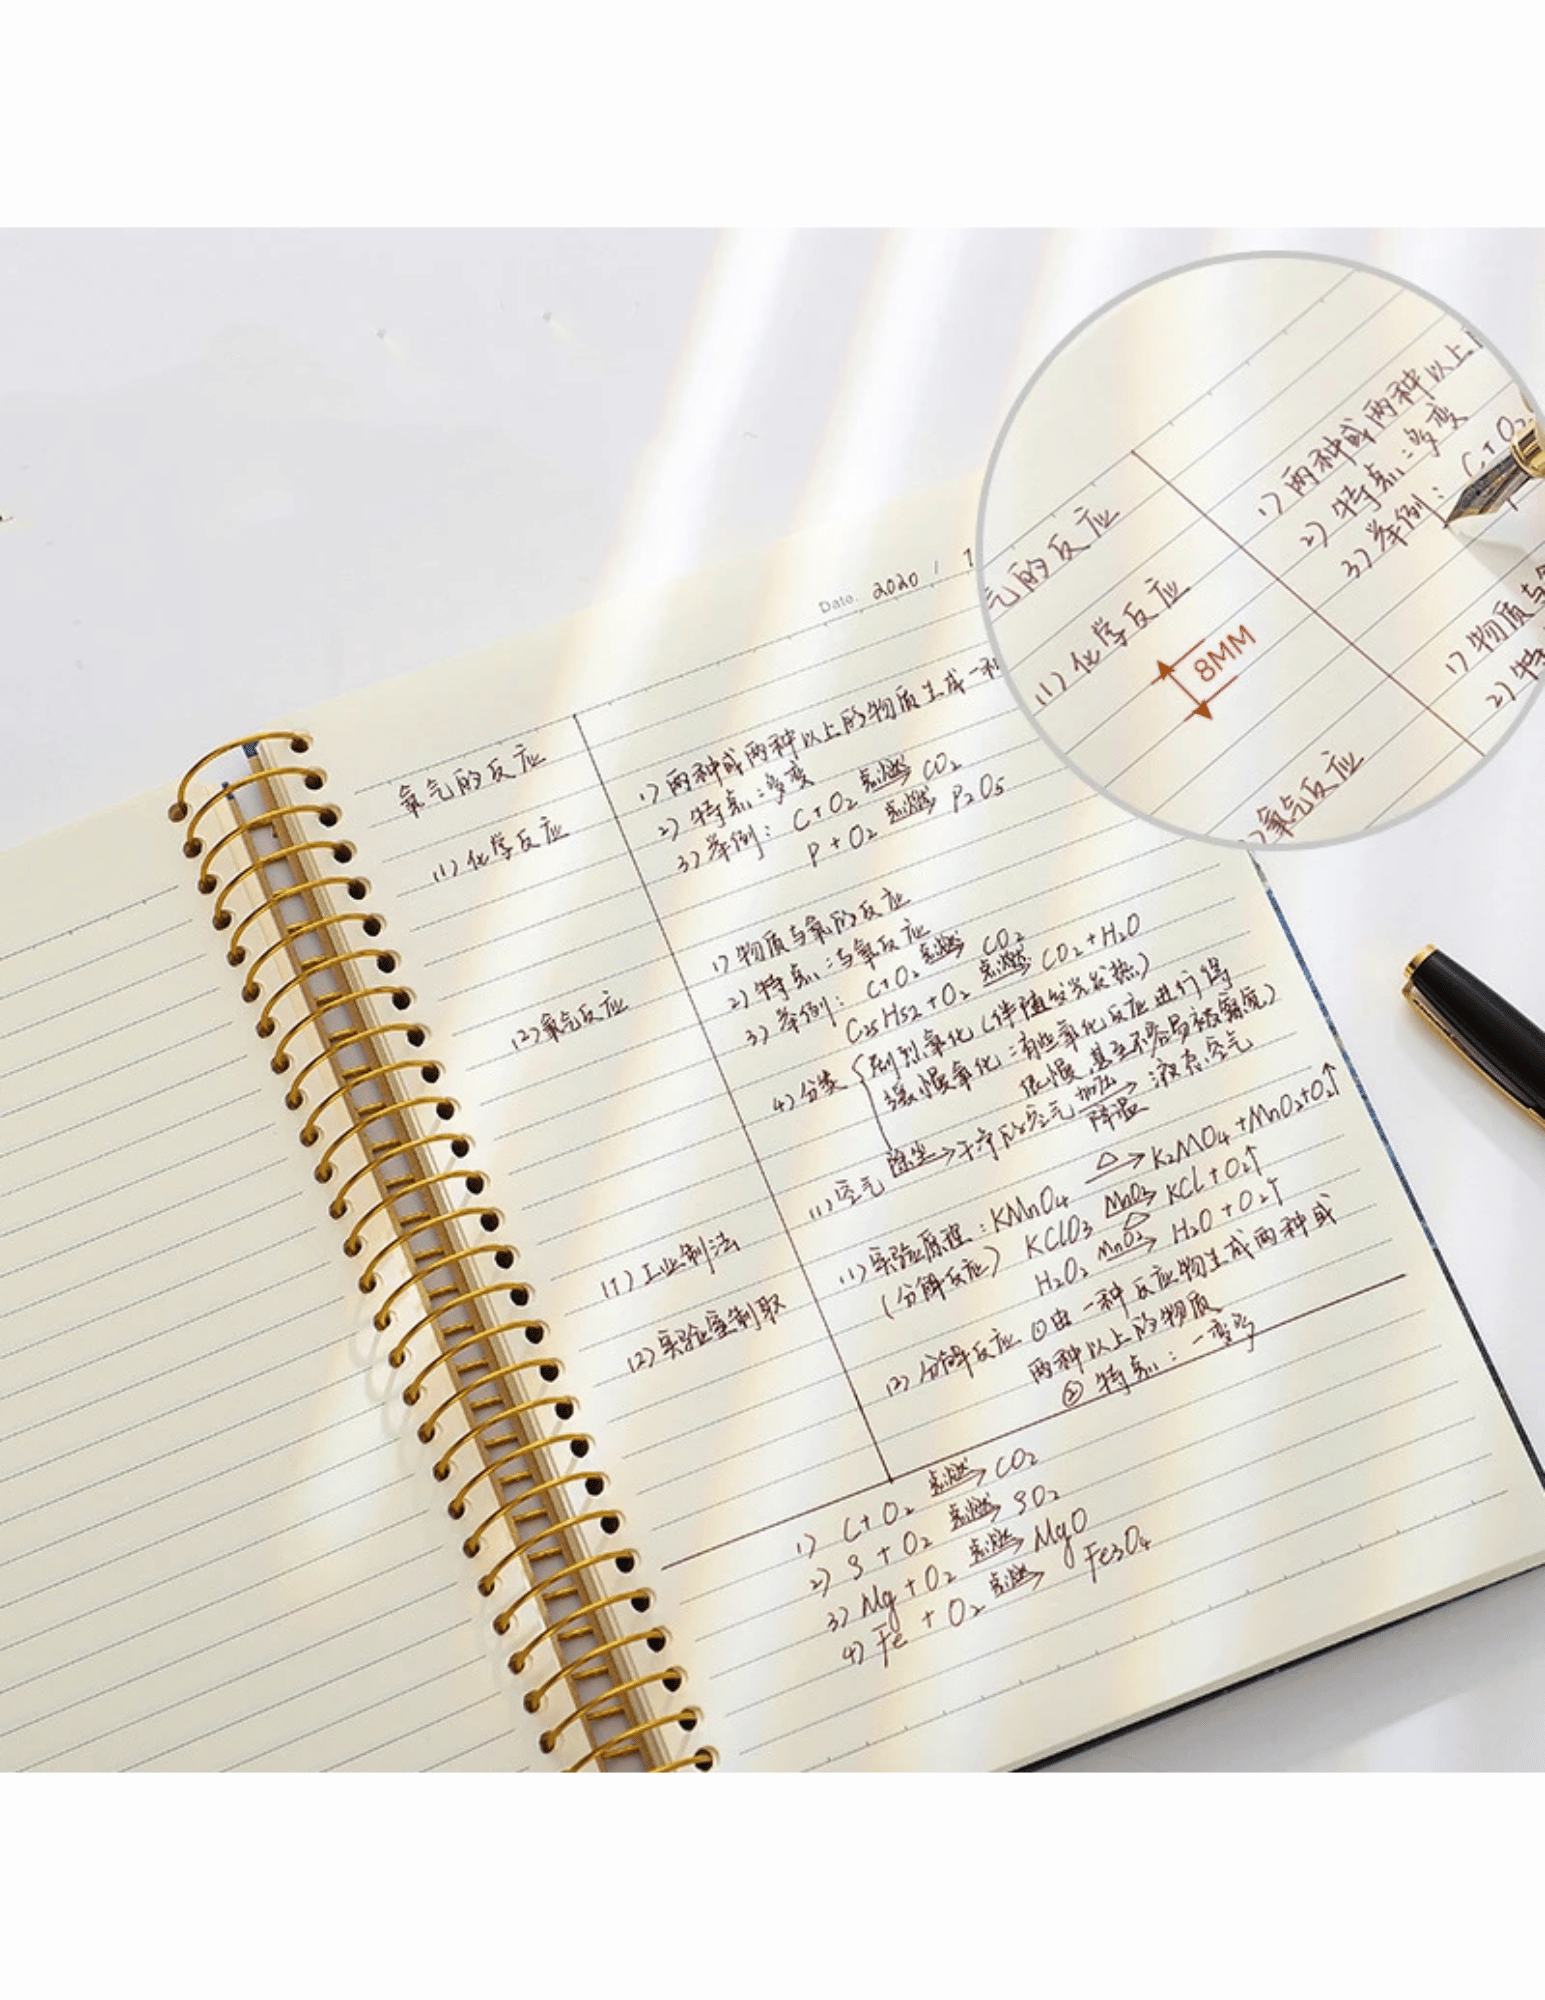 Date. 2020 / 1
氧气的反应
1) 两种或两种以上的物质生成一种
2) 特点：多变
(1) 化学反应
3) 举例： C+O₂ 点燃→ CO₂
P+O₂ 点燃→ P₂O₅
1) 物质与氧的反应
2) 特点：与氧反应
(2) 氧气反应
3) 举例： C+O₂ 点燃→ CO₂
C₂₅H₅₂+O₂ 点燃→ CO₂+H₂O
4) 分类 { 剧烈氧化 (伴随发光发热)
缓慢氧化：有些氧化反应进行得
很慢 甚至不容易被察觉)
(1) 工业制法
(1) 空气 除尘→ 干净的空气 加压→降温 液态空气
(2) 实验室制取
(1) 实验原理：KMnO₄ △→ K₂MO₄+MnO₂+O₂↑
(分解反应) KClO₃ MnO₂→△ KCl+O₂↑
H₂O₂ MnO₂→ H₂O+O₂↑
(2) 分解反应 ①由一种反应物生成两种或
两种以上的物质
② 特点：一变多
1) C+O₂ 点燃→ CO₂
2) S+O₂ 点燃→ SO₂
3) Mg+O₂ 点燃→ MgO
4) Fe+O₂ 点燃→ Fe₃O₄
1) 两种或两种以上
2) 特点：多变
3) 举例： C+O₂
气的反应
(1) 化学反应
8MM
1) 物质与
2) 特
氧气反应